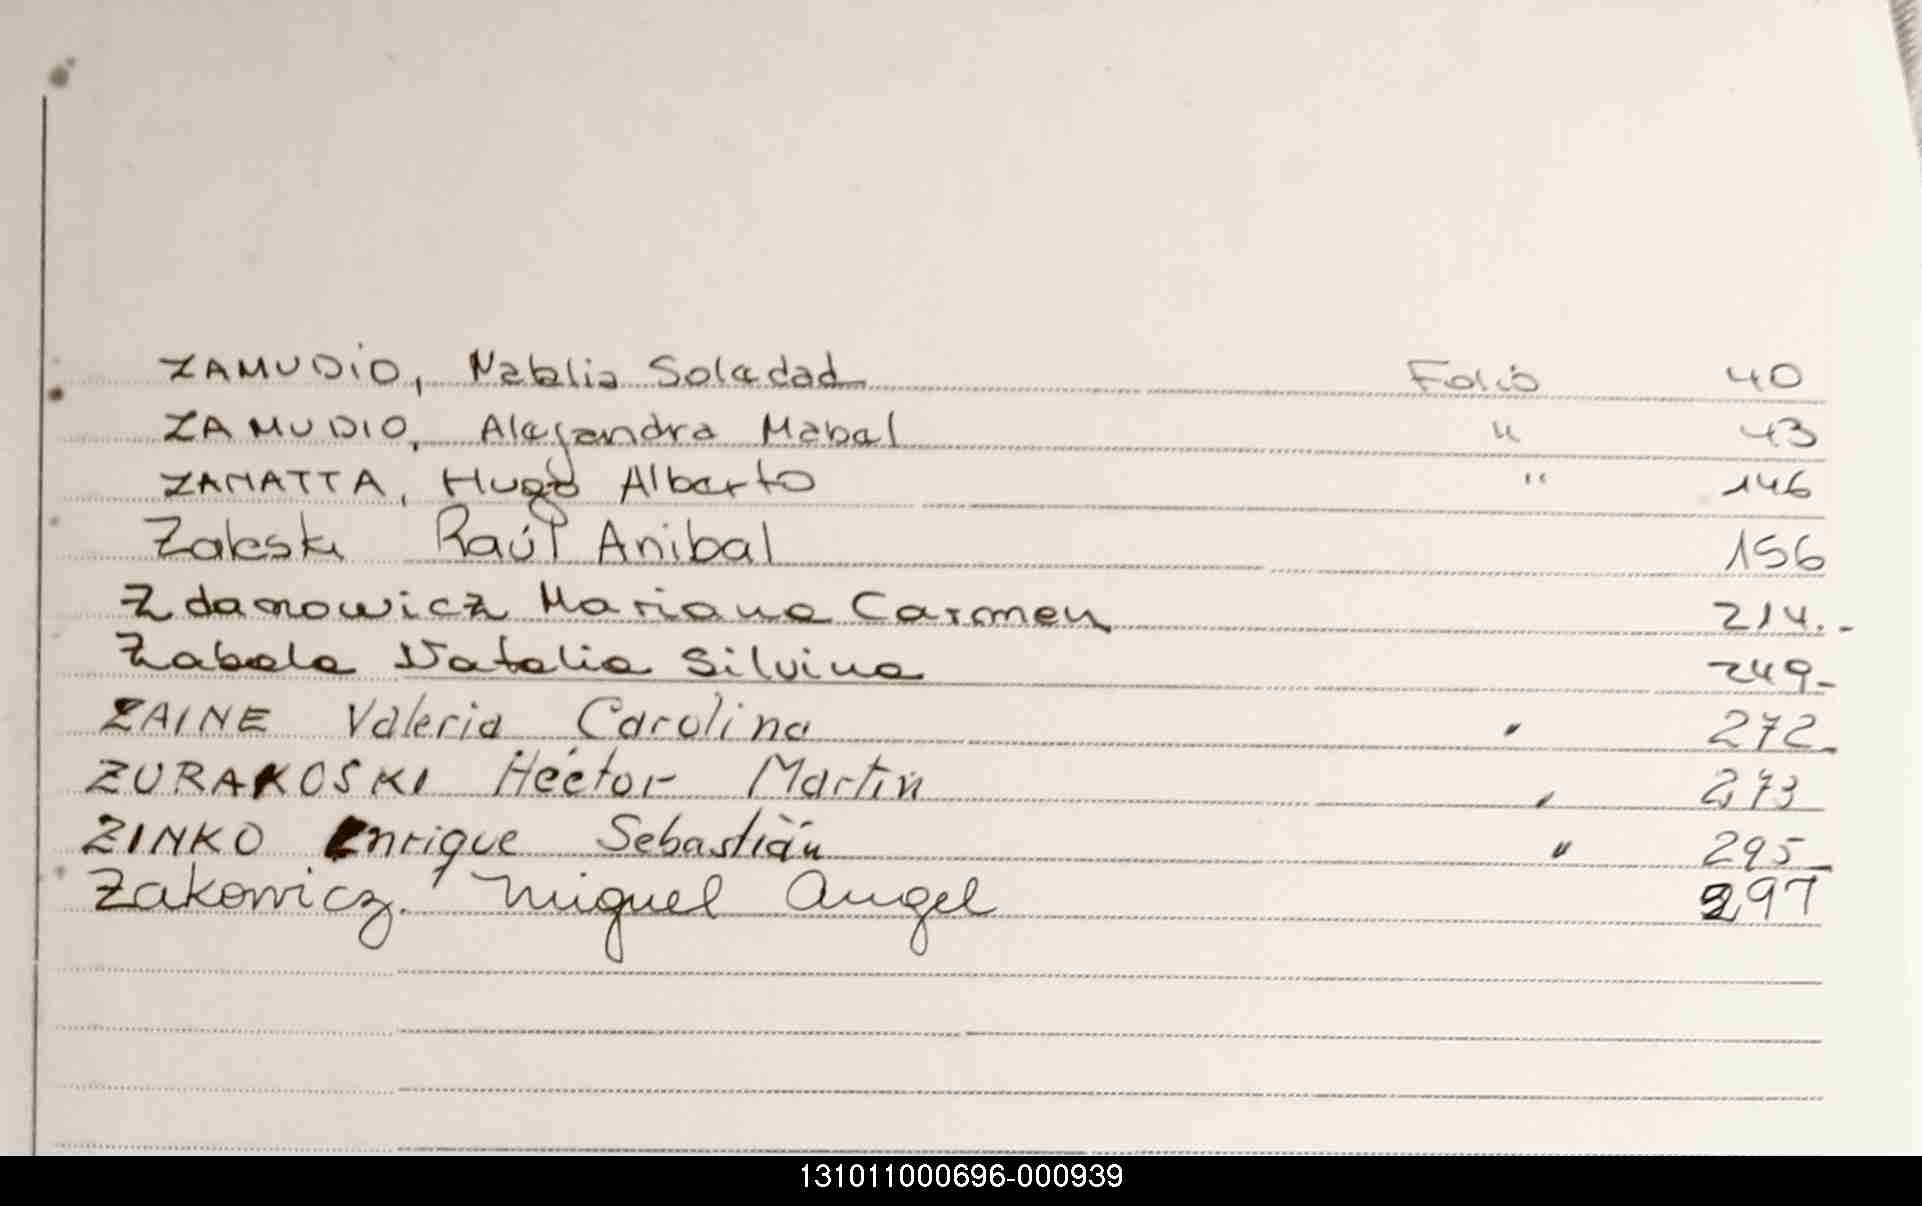 ZAMUDIO, Natalia Soledad Folio 40
ZAMUDIO, Alejandra Mabel " 43
ZAMATTA, Hugo Alberto " 146
Zaleski Raúl Anibal 156
Zdanowicz Mariana Carmen 214.-
Zabala Natalia Silvina 249-
ZAINE Valeria Carolina " 272-
ZURAKOSKI Héctor Martín " 273
ZINKO Enrique Sebastián " 295-
Zakowicz, Miguel Angel 297
131011000696-000939